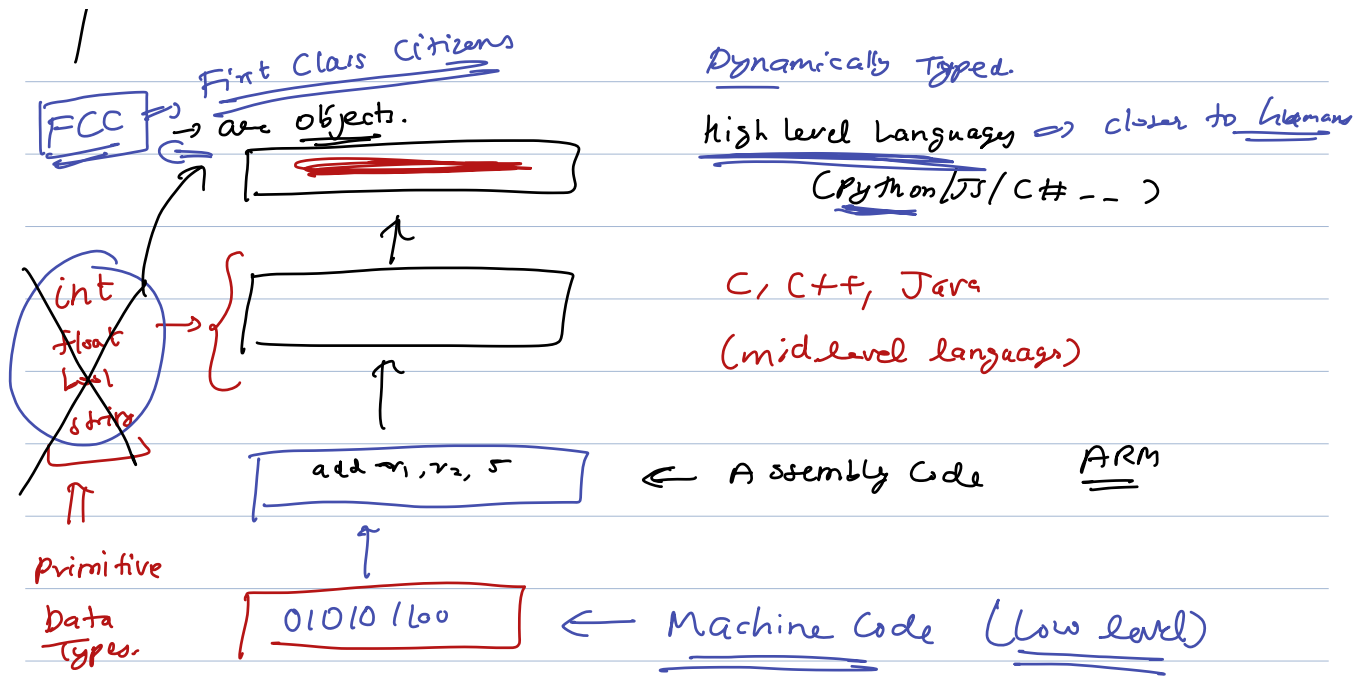 First Class Citizens
Dynamically Typed.
FCC
→ are objects.
high level Languages => closer to humans
(Python/JS/C# -- )
int
float
bool
string
C, C++, Java
(mid level languages)
add r1, r2, 5
← Assembly Code
ARM
Primitive
Data
Types.
010101100
← Machine Code (Low level)